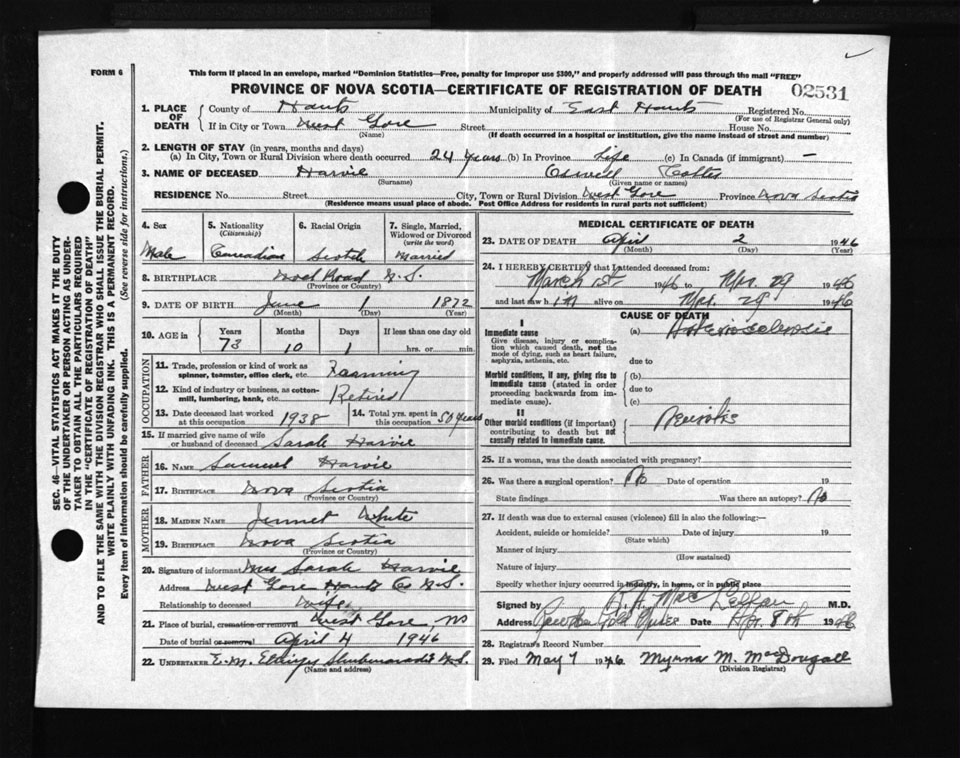 FORM 6
This form if placed in an envelope, marked "Dominion Statistics—Free, penalty for improper use $300," and properly addressed will pass through the mail "FREE"
PROVINCE OF NOVA SCOTIA—CERTIFICATE OF REGISTRATION OF DEATH 02531
SEC. 46—VITAL STATISTICS ACT MAKES IT THE DUTY
OF THE UNDERTAKER OR PERSON ACTING AS UNDER-
TAKER TO OBTAIN ALL THE PARTICULARS REQUIRED
IN THE "CERTIFICATE OF REGISTRATION OF DEATH"
AND TO FILE THE SAME WITH THE DIVISION REGISTRAR WHO SHALL ISSUE THE BURIAL PERMIT.
WRITE PLAINLY WITH UNFADING INK. THIS IS A PERMANENT RECORD.
Every item of information should be carefully supplied. (See reverse side for instructions.)
1. PLACE OF DEATH County of Hants Municipality of East Hants Registered No.
(For use of Registrar General only)
If in City or Town West Gore Street House No.
(Name) (If death occurred in a hospital or institution, give the name instead of street and number)
2. LENGTH OF STAY (in years, months and days)
(a) In City, Town or Rural Division where death occurred 24 years (b) In Province Life (c) In Canada (if immigrant) —
3. NAME OF DECEASED Harvie
(Surname) (Given name or names)
RESIDENCE No. Street City, Town or Rural Division West Gore Province Nova Scotia
(Residence means usual place of abode. Post Office Address for residents in rural parts not sufficient)
4. Sex Male
5. Nationality (Citizenship) Canadian
6. Racial Origin Scotch
7. Single, Married, Widowed or Divorced (write the word) Married
8. BIRTHPLACE Noel Road N.S.
(Province or Country)
9. DATE OF BIRTH June 1 1872
(Month) (Day) (Year)
10. AGE in Years 73 Months 10 Days 1 If less than one day old hrs. or min.
OCCUPATION
11. Trade, profession or kind of work as spinner, teamster, office clerk, etc. Farming
12. Kind of industry or business, as cotton-mill, lumbering, bank, etc. Retired
13. Date deceased last worked at this occupation 1938
14. Total yrs. spent in this occupation 50 years
15. If married give name of wife or husband of deceased Sarah Harvie
FATHER
16. NAME Samuel Harvie
17. BIRTHPLACE Nova Scotia
(Province or Country)
MOTHER
18. MAIDEN NAME Jennet White
19. BIRTHPLACE Nova Scotia
(Province or Country)
20. Signature of informant Mrs Sarah Harvie
Address West Gore Hants Co N.S.
Relationship to deceased Wife
21. Place of burial, cremation or removal West Gore, NS
Date of burial or removal April 4 1946
22. UNDERTAKER E. M. N.S.
(Name and address)
MEDICAL CERTIFICATE OF DEATH
23. DATE OF DEATH April 2 1946
(Month) (Day) (Year)
24. I HEREBY CERTIFY that I attended deceased from:
March 1st 1946 to Mar. 29 1946
and last saw him alive on Mar. 29 1946
CAUSE OF DEATH
I
Immediate cause
Give disease, injury or complication which caused death, not the mode of dying, such as heart failure, asphyxia, asthenia, etc.
(a) Arteriosclerosis
due to
Morbid conditions, if any, giving rise to immediate cause (stated in order proceeding backwards from immediate cause).
(b)
due to
(c)
II
Other morbid conditions (if important) contributing to death but not causally related to immediate cause.
Neuritis
25. If a woman, was the death associated with pregnancy?
26. Was there a surgical operation? No Date of operation 19
State findings Was there an autopsy? No
27. If death was due to external causes (violence) fill in also the following:—
Accident, suicide or homicide? Date of injury 19
(State which)
Manner of injury
(How sustained)
Nature of injury
Specify whether injury occurred in industry, in home, or in public place
Signed by Mac Lellan M.D.
Address Gold Mines Date Apr. 8th 1946
28. Registrar's Record Number
29. Filed May 7 1946 Myrna M. MacDougall
(Division Registrar)